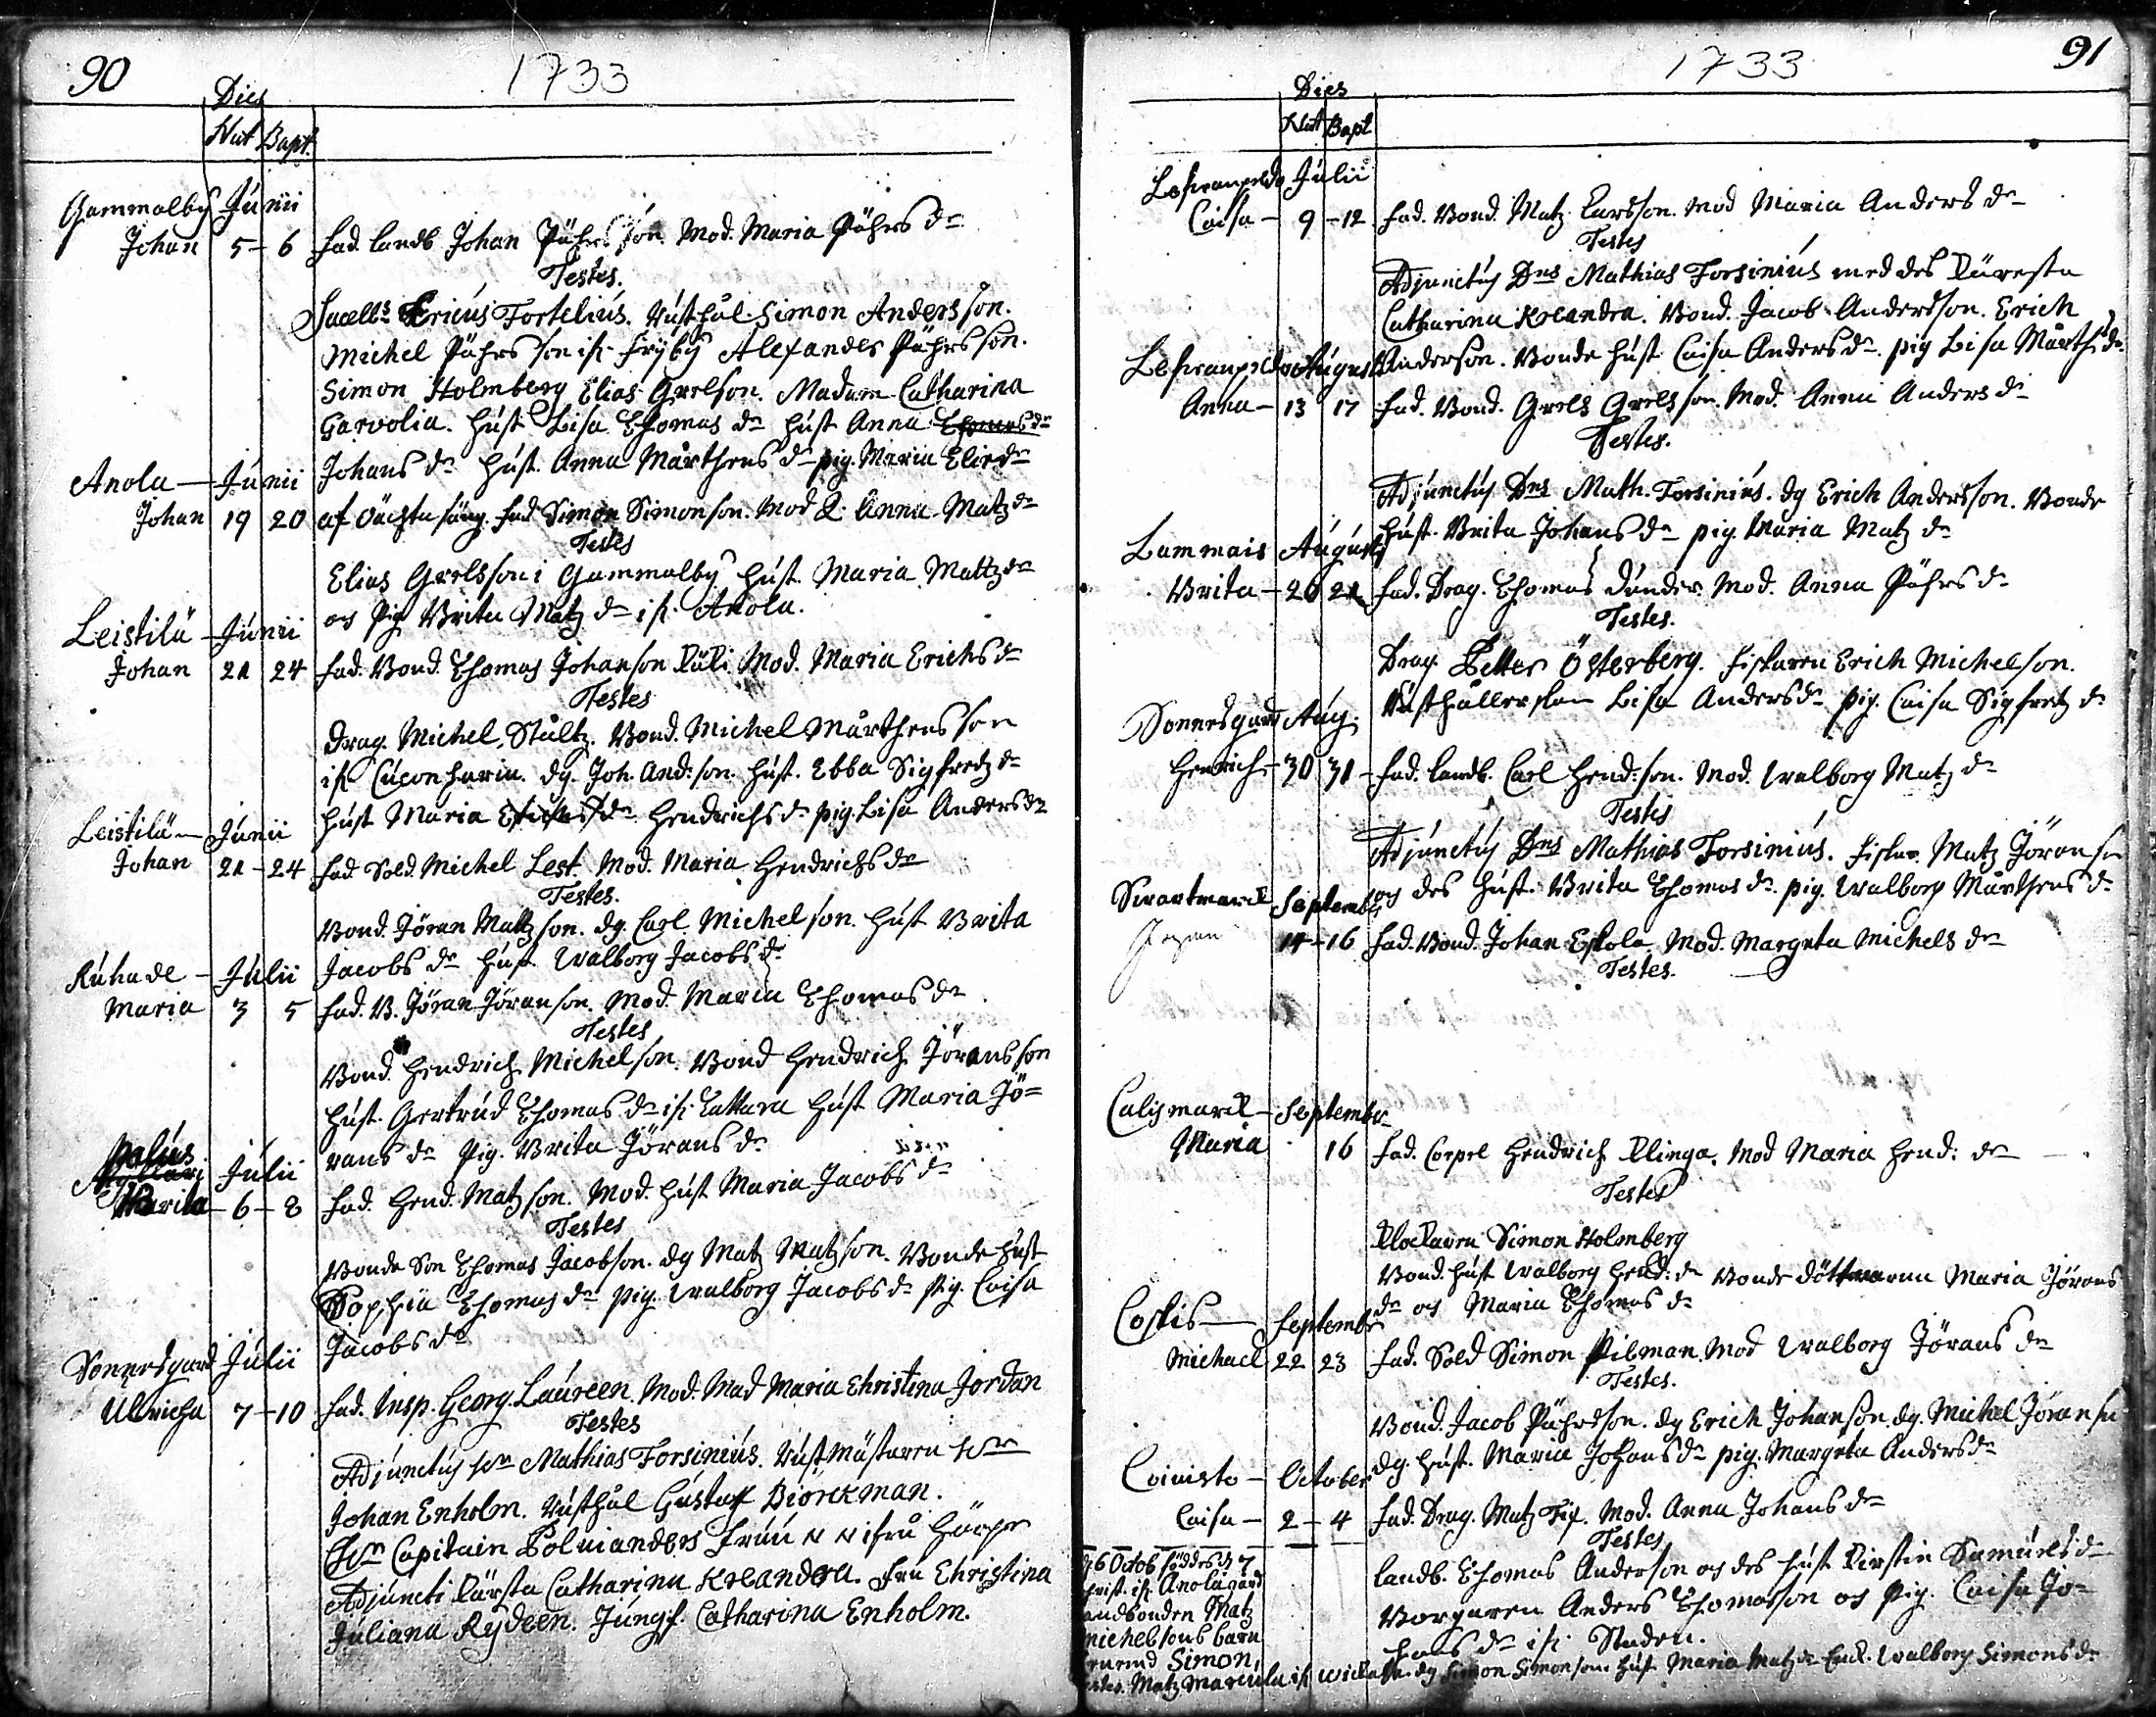 90
1733
Dies
Nat Bapt.
Gammalby Junii
Johan 5 - 6 fad. landb Johan Påhrsson Mod. Maria Påhrs dr
Testes.
Sacells Ericus Fortelius. Rusthål. Simon Andersson.
Michel Påhrsson ifr. Fryby Alexander Påhrsson.
Simon Holmberg Elias Grelson. Madam Catharina
Garvolia. hust Lisa Thomas dr hust Anna Thomas dr
Johans dr hust. Anna Mårthens dr pig. Maria Elie dr
Anola - Junii
Johan 19 20 af fad Simon Simonson. Mod Q. Anna Matz dr
Testes
Elias Grelsson i Gammalby hust. Maria Mattz dr
och Pig Brita Matz dr ifr. Anola.
Leistilä - Junii
Johan 21 24 fad. Bond. Thomas Johanson Mod. Maria Erichs dr
Testes
Drag. Michel Stültz. Bond. Michel Mårthensson
ifr Cuconharia. dg. Joh. And:son. hust. Ebba Sigfredz dr
hust Maria Hendrichs dr pig. Lisa Anders dr
Leistilä - Junii
Johan 21 - 24 fad. Sold. Michel Lest. Mod. Maria Hendrichs dr
Testes.
Bond. Jöran Mattzson. dg. Carl Michelson. hust Brita
Jacobs dr hust. Walborg Jacobs dr
Ruhade - Julii
Maria 3 5 fad. B. Jöran Jöranson. Mod. Maria Thomas dr
Testes
Bond. Hendrich Michelson. Bond Hendrich Jöransson
hust. Gertrud Thomas dr ifr. Lattara hust Maria Jö=
rans dr Pig. Brita Jörans dr
Palus
Julii
Marita - 6 - 8 fad. Hend. Matzson. Mod. hust Maria Jacobs dr
Testes
Bonde Son Thomas Jacobson. dg Matz Matzson. Bonde hust
Sophia Thomas dr pig. Walborg Jacobs dr Pig. Caisa
Jacobs dr
Sonnesgard Julii
Ulricha 7 - 10 fad. Insp. Georg. Laureen. Mod. Mad Maria Christina Jordan
Testes
Adjunctus hr Mathias Forsinius. Rustmästaren hr
Johan Enholm. Rusthål Gustaf Biörckman.
hr Capitain Polvianders Fruu N N ifrå
Adjuncti Kärsta Catharina Kreandra. Fru Christina
Juliana Rydeen. Jungf. Catharina Enholm.
91
1733
Dies
Nat Bapt
Julii
Caisa - 9 - 12 fad. Bond. Matz Larsson. Mod Maria Anders dr
Testes
Adjunctus Dns Mathias Forsinius med des Käresta
Catharina Kreandra. Bond. Jacob Andersson. Erich
Anderson. Bonde hust Caisa Anders dr. pig Lisa Mårth. dr
Augusti
Anna - 13 17 fad. Bond. Grels Grelsson. Mod. Anna Anders dr
Testes.
Adjunctus Dns Math. Forsinius. dg Erich Andersson. Bonde
hust. Brita Johans dr pig. Maria Matz dr
Lammais Augusti
Brita - 20 21 fad. Drag. Thomas Dunder. Mod. Anna Påhrs dr
Testes.
Drag. Petter Österberg. fiskaren Erich Michelson.
Rusthållerskan Lisa Anders dr pig. Caisa Sigfretz dr
Sonnesgard Aug.
Henrich - 30 31 - fad. landb. Carl Hend:son. Mod. Walborg Matz dr
Testes
Adjunctus Dns Mathias Forsinius. fiskar. Matz Jöranson
och des hust. Brita Thomas dr. pig. Walborg Mårthens dr
Swartmarck Septembr
14 - 16 fad. Bond. Johan Eskola Mod. Margeta Michels dr
Testes.
Calismarck - Septembr
Maria 16 fad. Corpel Hendrich Klinga. Mod Maria Hend: dr
Testes
Klockaren Simon Holmberg
Bond. hust Walborg Hend: dr Bonde döttrarna Maria Jörans
dr och Maria Thomas dr
Coskis - Septembr
Michael 22 23 fad. Sold Simon Pilman. Mod Walborg Jörans dr
Testes.
Bond. Jacob Påhrsson. dg Erich Johanson. dg. Michel Jöranson
dg. hust. Maria Johans dr pig. Margeta Anders dr
Coivisto - October
Caisa - 2 - 4 fad. Drag. Matz Fix. Mod. Anna Johans dr
Testes
landb. Thomas Anderson och des hust Kirstin Samuels dr
Borgaren Anders Thomasson och Pig. Caisa Jo=
hans dr ifr. Staden.
d 6 Octob föddes d 7
Christ. ifr. Anola gård
landbonden Matz
Michelsons barn
Simon.
Testes. Matz Marcula ifr dg Simon Simonson hust Maria Matz dr Enck. Walborg Simons dr